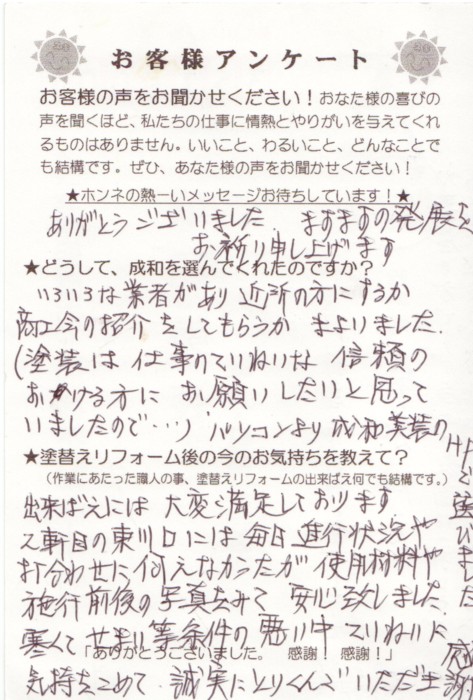 お客様アンケート
お客様の声をお聞かせください！おなた様の喜びの
声を聞くほど、私たちの仕事に情熱とやりがいを与えてくれ
るものはありません。いいこと、わるいこと、どんなことで
も結構です。ぜひ、あなた様の声をお聞かせください！
★ホンネの熱ーいメッセージお待ちしています！★
ありがとうございました　ますますの発展を
お祈り申し上げます
★どうして、成和を選んでくれたのですか？
いろいろな業者があり近所の方にするか
商工会の紹介をしてもらうか まよいました.
(塗装は仕事のていねいな信頼の
おける方にお願いしたいと思って
いましたので…) パソコンより成和美装の
HPで選びました
★塗替えリフォーム後の今のお気持ちを教えて？
（作業にあたった職人の事、塗替えリフォームの出来ばえ何でも結構です。）
出来ばえには大変満足しております
2軒目の東川口には毎日進行状況や
打合わせに行えなかったが使用材料や
施行前後の写真をみて安心致しました
寒くてせまい等条件の悪い中ていねいに
「ありがとうございました。　感謝！感謝！」
気持をこめて 誠実にとりくんでいただき
感謝